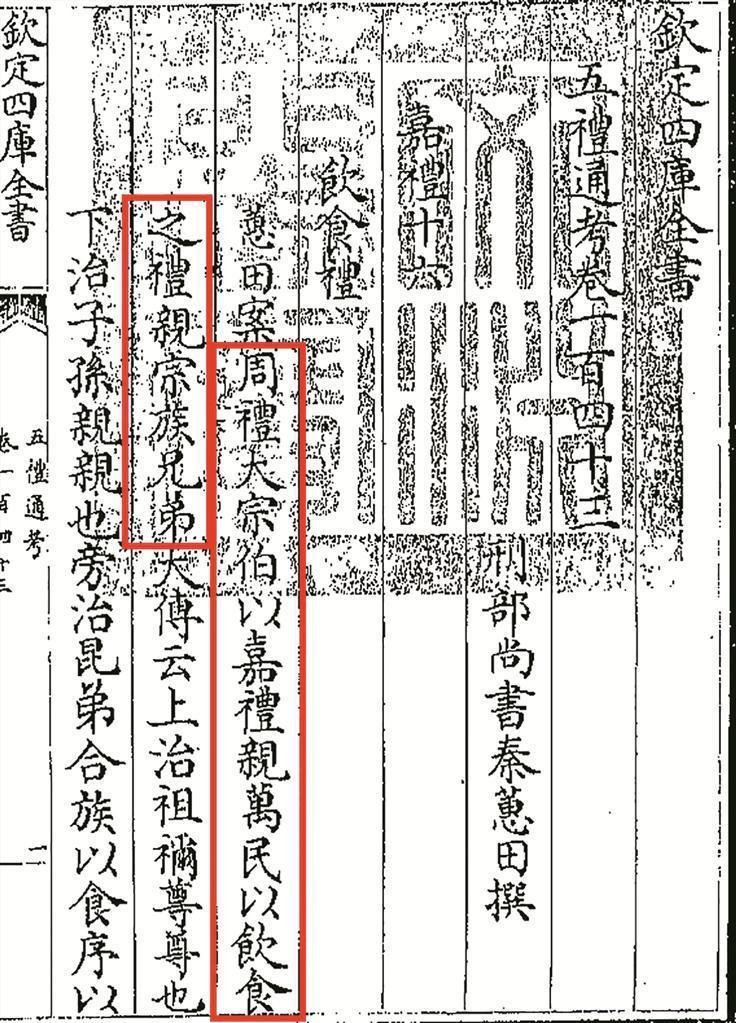 欽定四庫全書
五禮通考卷一百四十三
刑部尚書秦蕙田撰
嘉禮十六
飲食禮
蕙田案周禮大宗伯以嘉禮親萬民以飲食
之禮親宗族兄弟大傳云上治祖禰尊尊也
下治子孫親親也旁治昆弟合族以食序以
欽定四庫全書
五禮通考
卷一百四十三
一